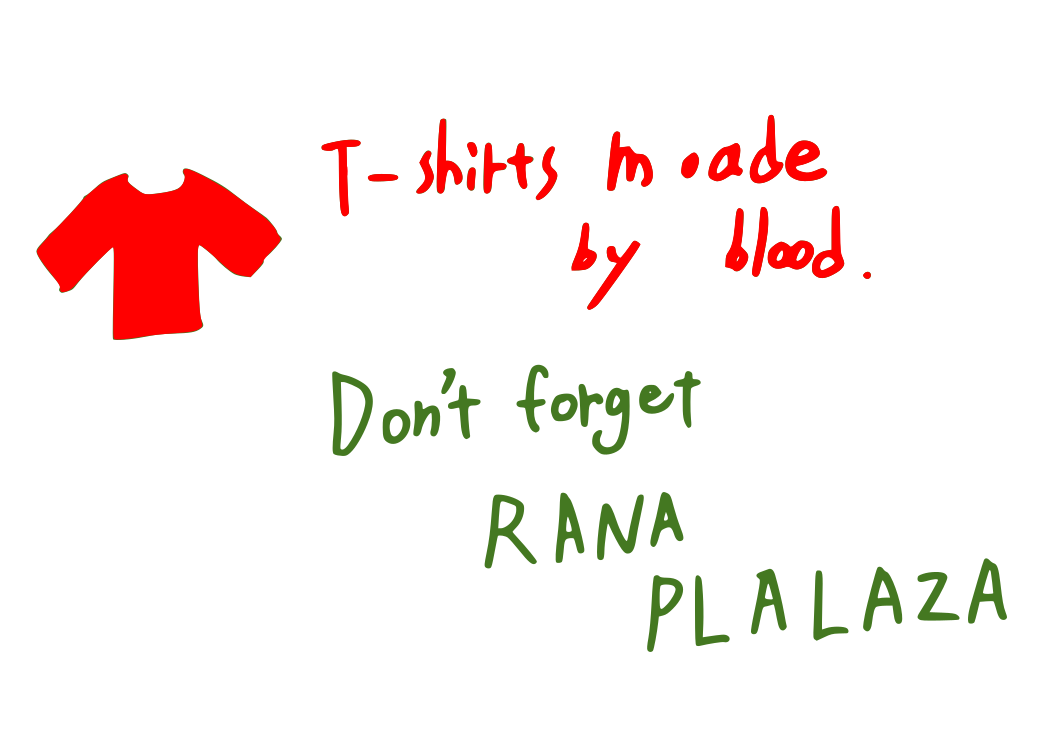 T-shirts made
by blood.
Don't forget
RANA
PLALAZA